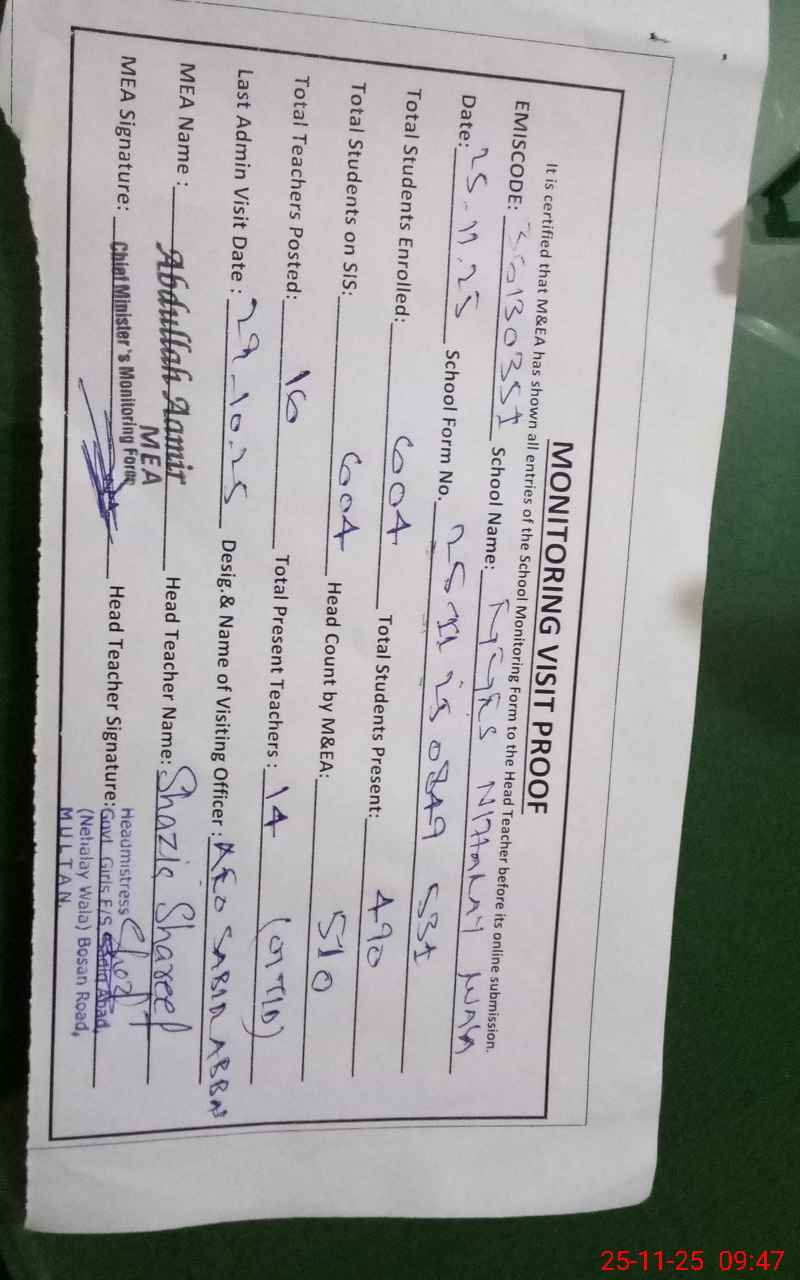 MONITORING VISIT PROOF
It is certified that M&EA has shown all entries of the School Monitoring Form to the Head Teacher before its online submission.
EMISCODE: 36130351 School Name: NIHALAY WALA
Date: 25-11.25 School Form No. 25 11 25 0849 531
Total Students Enrolled: 604 Total Students Present: 490
Total Students on SIS: 604 Head Count by M&EA: 510
Total Teachers Posted: 16 Total Present Teachers : 14
Last Admin Visit Date : 29-10.25 Desig.& Name of Visiting Officer : AEO SABIR ABBA
MEA Name : Abdullah Aamir Head Teacher Name: Shazia Shareef
MEA
MEA Signature: Chief Minister's Monitoring Force Head Teacher Signature:
Headmistress
Govt. Girls E/S Abad,
(Nehalay Wala) Bosan Road,
MULTAN.
25-11-25 09:47